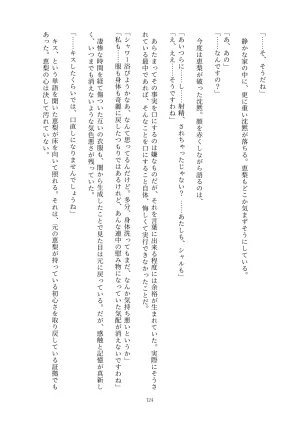 「……そ、そうだね」
静かな家の中に、更に重い沈黙が落ちる。恵梨もどこか気まずそうにしている。
「あ、あの」
「……なんですの?」
今度は恵梨が沈黙。顔を赤くしながら語るのは、
「あいつらに……し……射精、されちゃったじゃない?……あたしも、シャルも」
「え、ええ……そうですわね」
あらたまってその事実を口にするのは嫌なものだが、それを言葉に出来る程度には余裕が現れていた。実際にそうさ
れている最中であれば、そんなことを口にすること自体、悔しくて実行できなかったことだ。
「シャワー浴びようかなあ、なんて思ってるんだけど。多分、身体洗ってもまだ、なんか気持ち悪いというか」
「私も……服も身体も奇麗に戻したつもりではあるけれど、あんな連中の慰み物になっていた気配が消えないですわね」
凄惨な時間を経て傷ついた互いの衣服も、闇から生成したことで見た目は元に戻っている。だが、感触と記憶が真新し
く、いつまでも消えないような気色悪さが残っていた。
「……キスしたくらいでは、口直しになりませんでしょうね」
キス、という単語を聞いた恵梨が床を向いて照れる。それは、元の恵梨が持っている初心さを取り戻している証拠でも
あった。恵梨の心は決して汚れていない。
124